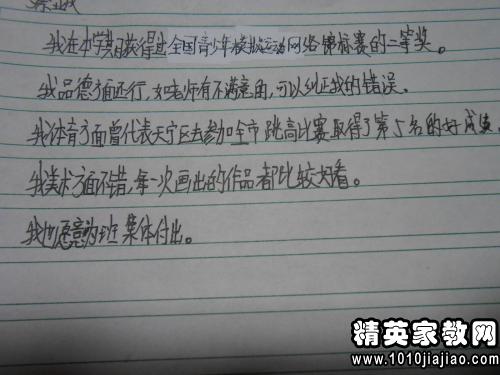 我在本学期获得过全国青少年模拟运动网络锦标赛的二等奖。
我品德方面还行,如老师有不满意的,可以纠正我的错误。
我体育方面曾代表天宁区去参加全市跳高比赛取得了第5名的好成绩。
我美术方面不错,每一次画出的作品都比较好看。
我也愿意为班集体付出。
精英家教网
www.1010jiajiao.com